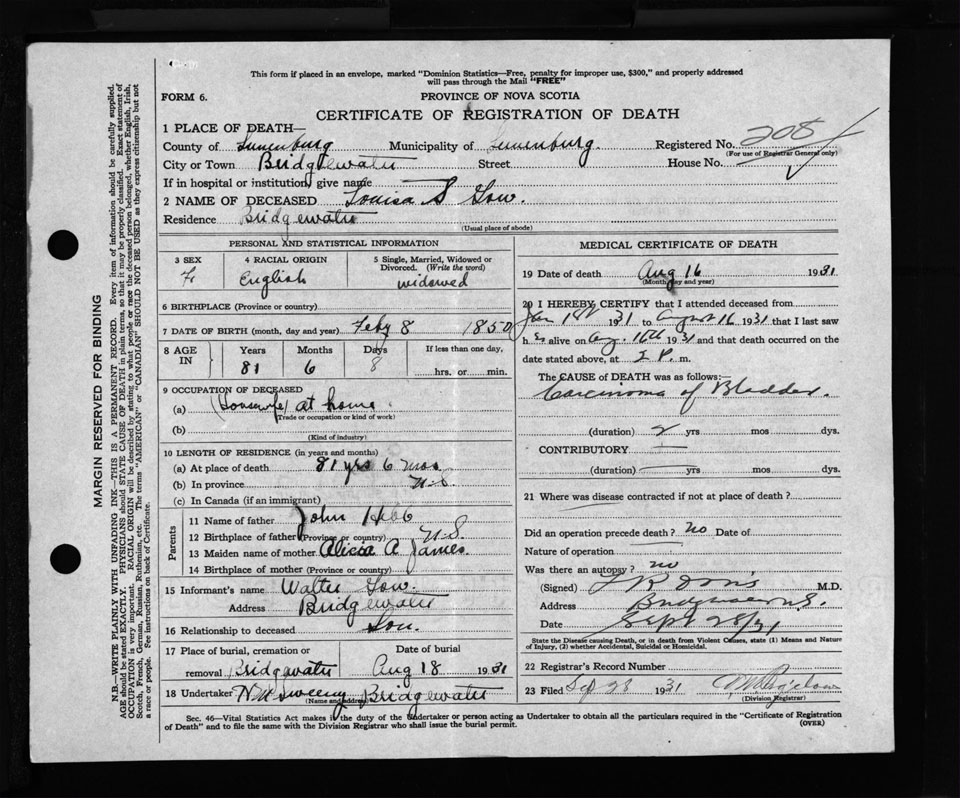 This form if placed in an envelope, marked "Dominion Statistics—Free, penalty for improper use, $300," and properly addressed
will pass through the Mail "FREE"
FORM 6.
PROVINCE OF NOVA SCOTIA
CERTIFICATE OF REGISTRATION OF DEATH
1 PLACE OF DEATH—
County of Lunenburg Municipality of Lunenburg Registered No. 208
(For use of Registrar General only)
City or Town Bridgewater Street House No.
If in hospital or institution, give name
2 NAME OF DECEASED Louisa S Gow.
Residence Bridgewater
(Usual place of abode)
PERSONAL AND STATISTICAL INFORMATION
3 SEX
F
4 RACIAL ORIGIN
English
5 Single, Married, Widowed or
Divorced. (Write the word)
widowed
6 BIRTHPLACE (Province or country)
7 DATE OF BIRTH (month, day and year) Feby 8 1850
8 AGE
IN
Years Months Days If less than one day
81 6 8 hrs. or min.
9 OCCUPATION OF DECEASED
(a) (Housewife) at home
(Trade or occupation or kind of work)
(b)
(Kind of industry)
10 LENGTH OF RESIDENCE (in years and months)
(a) At place of death 81 yrs 6 mos
(b) In province N.S.
(c) In Canada (if an immigrant)
Parents
11 Name of father John Hebb
12 Birthplace of father (Province or country) N.S.
13 Maiden name of mother Alicia A James
14 Birthplace of mother (Province or country)
15 Informant's name Walter Gow.
Address Bridgewater
16 Relationship to deceased Son.
17 Place of burial, cremation or Date of burial
removal Bridgewater Aug 18 1931
18 Undertaker Bridgewater
(Name and address)
MEDICAL CERTIFICATE OF DEATH
19 Date of death Aug 16 1931
(Month day and year)
20 I HEREBY CERTIFY that I attended deceased from
Jan 1st 1931 to August 16 1931 that I last saw
h er alive on Aug. 16th 1931 and that death occurred on the
date stated above, at 2 P. m.
The CAUSE of DEATH was as follows:
Carcinoma of Bladder.
(duration) 2 yrs mos dys.
CONTRIBUTORY
(duration) yrs mos dys.
21 Where was disease contracted if not at place of death?
Did an operation precede death? no Date of
Nature of operation
Was there an autopsy? no
(Signed) M.D.
Address Bridgewater N.S.
Date Sept 28/31
State the Disease causing Death, or in death from Violent Causes, state (1) Means and Nature
of Injury, (2) whether Accidental, Suicidal or Homicidal.
22 Registrar's Record Number
23 Filed Sep 28 1931
(Division Registrar)
Sec. 46—Vital Statistics Act makes it the duty of the Undertaker or person acting as Undertaker to obtain all the particulars required in the "Certificate of Registration
of Death" and to file the same with the Division Registrar who shall issue the burial permit.
(OVER)
MARGIN RESERVED FOR BINDING
N.B.—WRITE PLAINLY WITH UNFADING INK—THIS IS A PERMANENT RECORD. Every item of information should be carefully supplied.
AGE should be stated EXACTLY. PHYSICIANS should STATE CAUSE OF DEATH in plain terms, so that it may be properly classified. Exact statement of
OCCUPATION is very important. RACIAL ORIGIN will be described by stating to what people or race the deceased person belonged, whether English, Irish,
Scotch, French, German, Russian, Ruthenian, etc. The terms "AMERICAN" or "CANADIAN" SHOULD NOT BE USED as they express citizenship but not
a race or people. See instructions on back of Certificate.